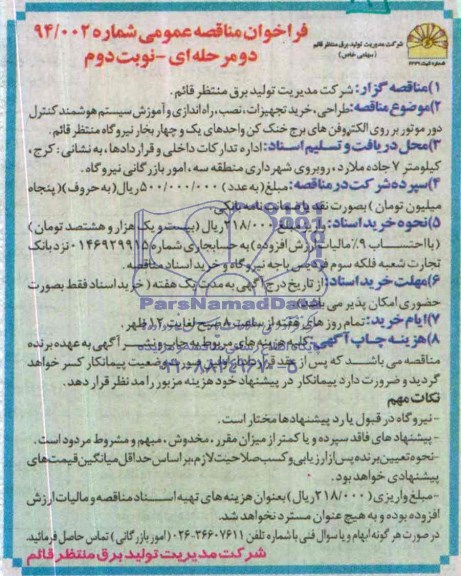 فراخوان مناقصه عمومی شماره ۹۴/۰۰۲
دو مرحله ای - نوبت دوم
شرکت مدیریت تولید برق منتظر قائم
(سهامی خاص)
۱)مناقصه گزار: شرکت مدیریت تولید برق منتظر قائم.
۲)موضوع مناقصه: طراحی، خرید تجهیزات، نصب، راه اندازی و آموزش سیستم هوشمند کنترل
دور موتور بر روی الکتروفن های برج خنک کن واحدهای یک و چهار بخار نیروگاه منتظر قائم.
۳)محل دریافت و تسلیم اسناد: اداره تدارکات داخلی و قراردادها، به نشانی: کرج،
کیلومتر ۷ جاده ملارد، روبروی شهرداری منطقه سه، امور بازرگانی نیروگاه.
۴)سپرده شرکت در مناقصه: مبلغ (به عدد) ۵۰۰/۰۰۰/۰۰۰ریال(به حروف)(پنجاه
میلیون تومان) بصورت نقد یا ضمانت نامه بانکی.
۵)نحوه خرید اسناد: واریز مبلغ ۲۱۸/۰۰۰ریال (بیست و یک هزار و هشتصد تومان)
(با احتساب ۹٪ مالیات ارزش افزوده) به حساب جاری شماره ۰۱۴۶۹۲۹۹۱۵ نزد بانک
تجارت شعبه فلکه سوم فردیس باجه نیروگاه و خرید اسناد مناقصه.
۶)مهلت خرید اسناد: از تاریخ درج آگهی به مدت یک هفته (خرید اسناد فقط بصورت
حضوری امکان پذیر می باشد).
۷)ایام خرید: تمام روز های هفته از ساعت ۸ صبح لغایت ۱۲ ظهر.
۸)هزینه چاپ آگهی: کلیه هزینه های مربوط به چاپ و نشر آگهی به عهده برنده
مناقصه می باشد که پس از عقد قرارداد از اولین صورت وضعیت پیمانکار کسر خواهد
گردید و ضرورت دارد پیمانکار در پیشنهاد خود هزینه مزبور را مد نظر قرار دهد.
نکات مهم
-نیروگاه در قبول یا رد پیشنهادها مختار است.
-پیشنهادهای فاقد سپرده و یا کمتر از میزان مقرر، مخدوش، مبهم و مشروط مردود است.
-نحوه تعیین برنده پس از ارزیابی و کسب صلاحیت لازم، بر اساس حداقل میانگین قیمت های
پیشنهادی خواهد بود.
-مبلغ واریزی (۲۱۸/۰۰۰ریال) بعنوان هزینه های تهیه اسناد مناقصه و مالیات ارزش
افزوده بوده و به هیچ عنوان مسترد نخواهد شد.
در صورت هر گونه ابهام و یا سوال فنی با شماره تلفن ۳۶۶۰۷۶۱۱-۰۲۶ (امور بازرگانی) تماس حاصل فرمائید.
شرکت مدیریت تولید برق منتظر قائم
ParsNamadData